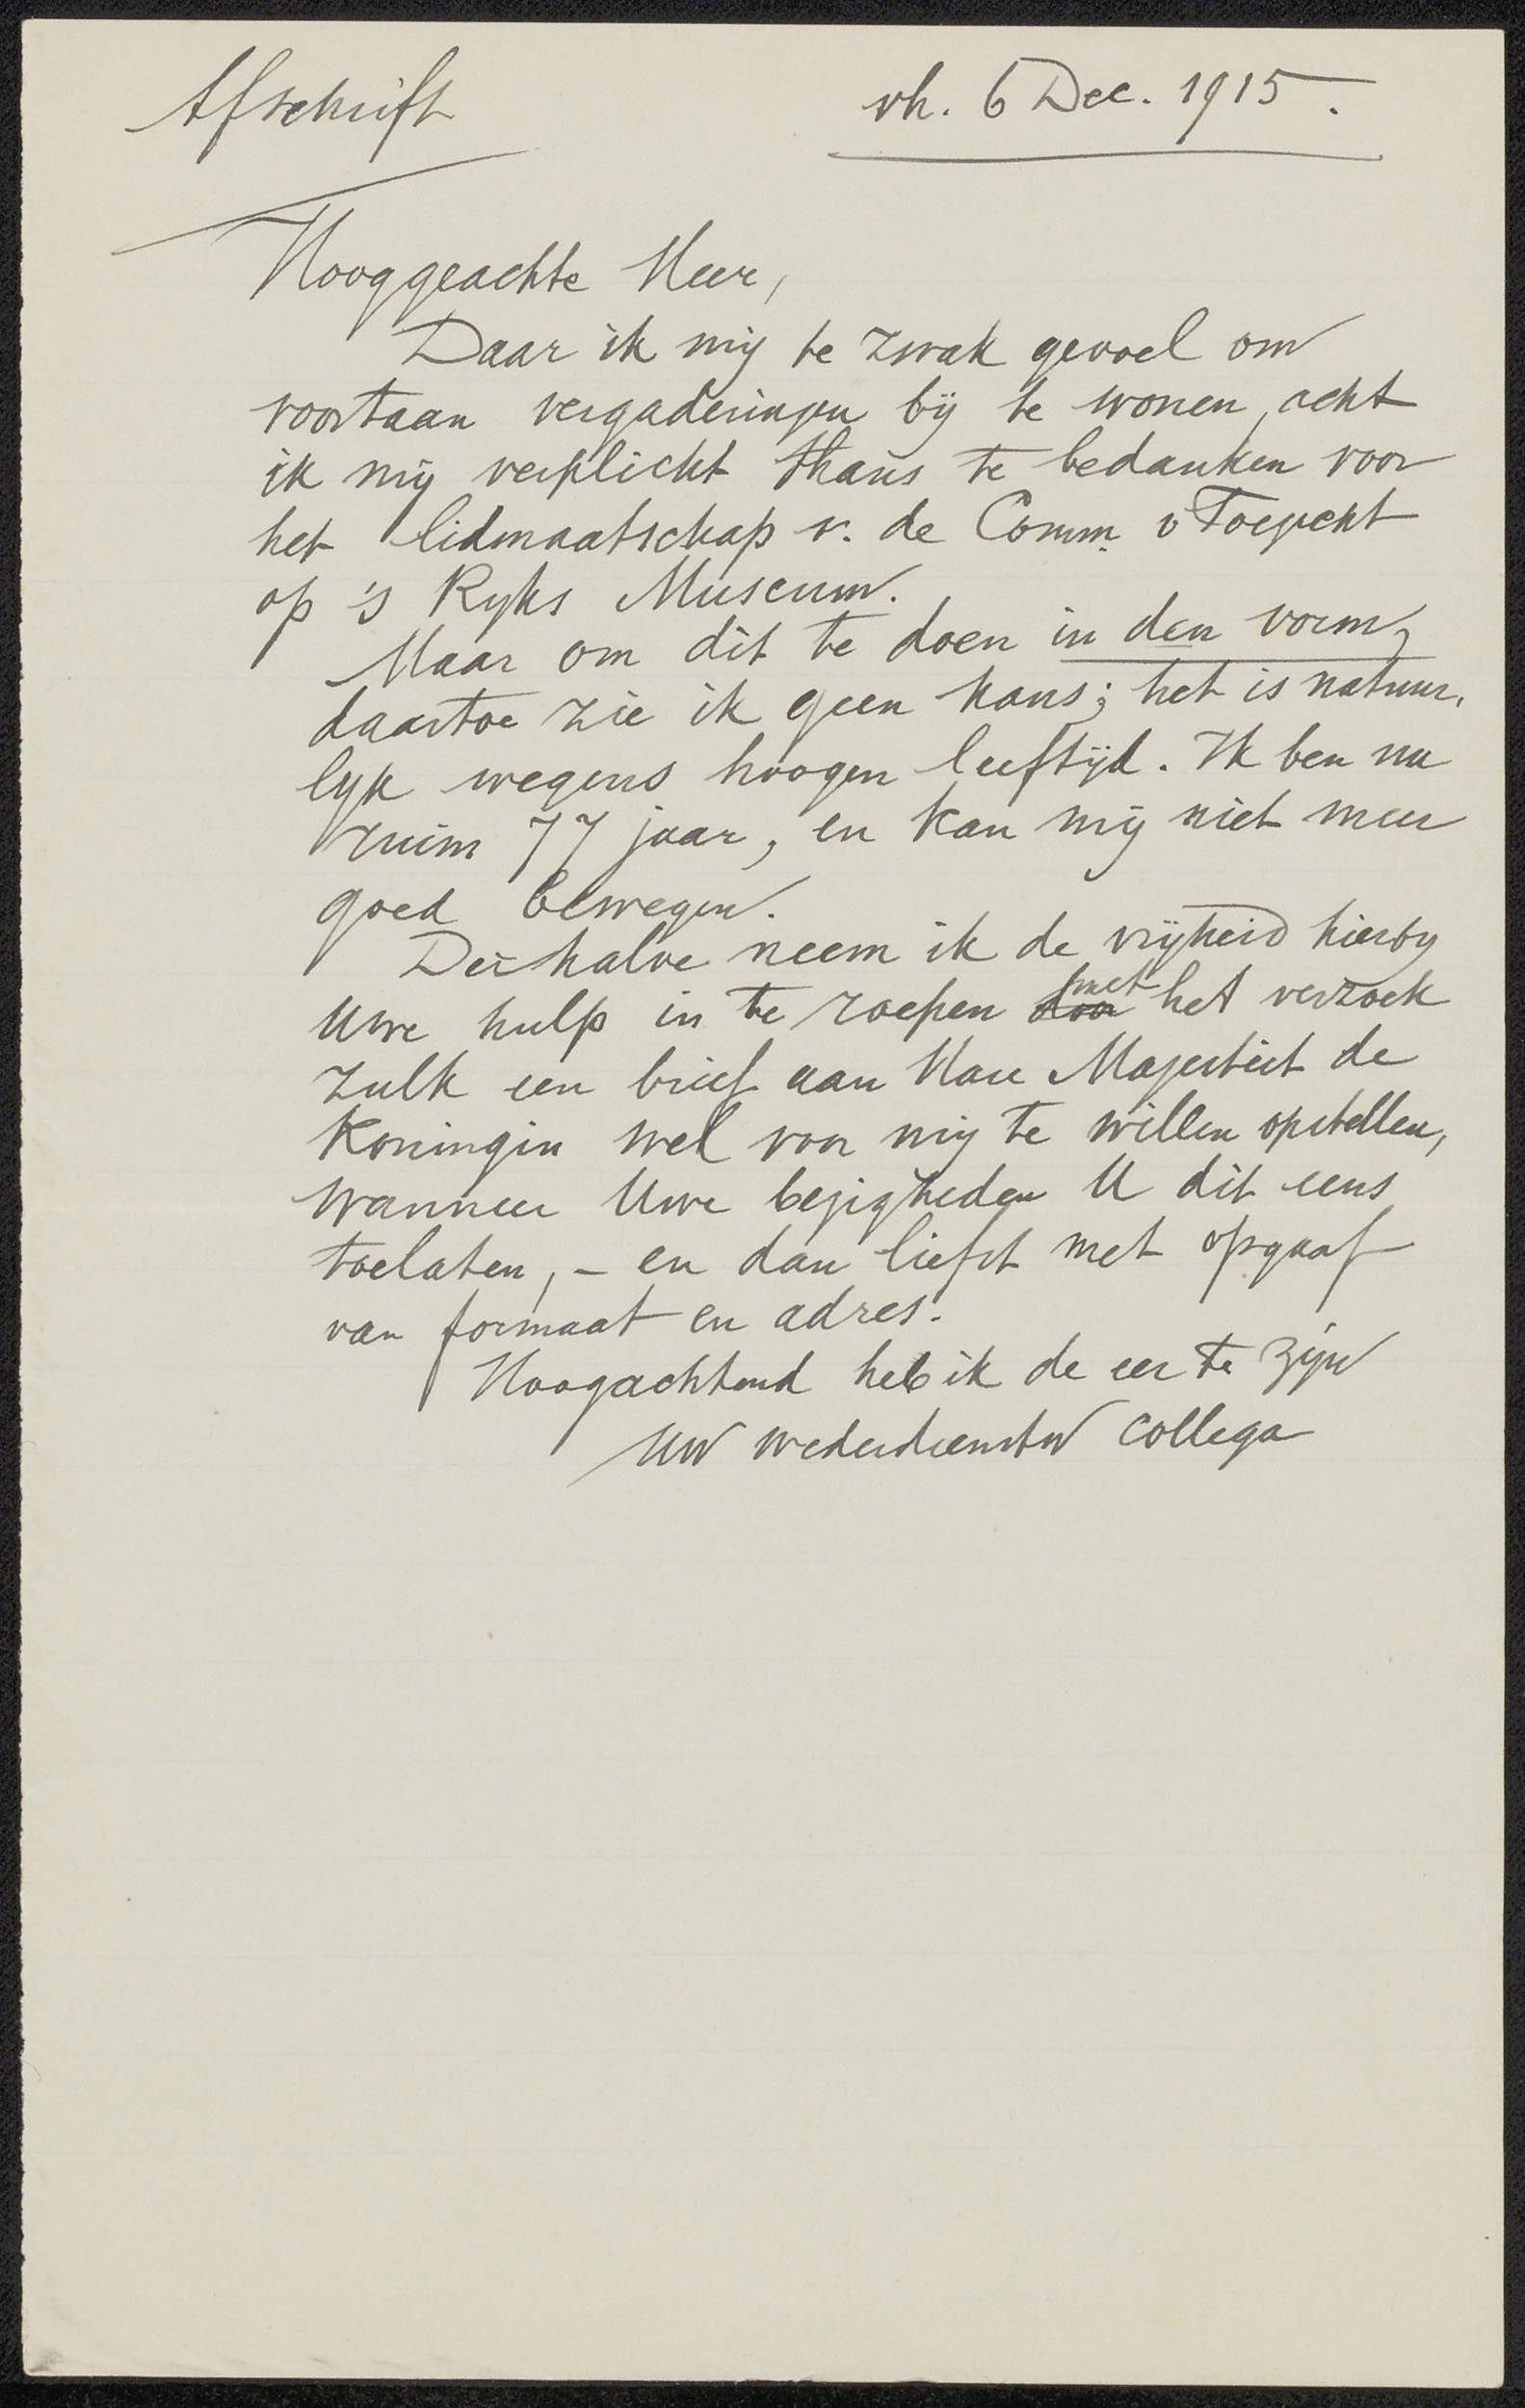 Afschrift
vh. 6 Dec. 1915.
Hooggeachte Heer,
Daar ik mij te zwak gevoel om
voortaan vergaderingen bij te wonen, acht
ik mij verplicht thans te bedanken voor
het lidmaatschap v. de Comm. v Toezicht
op 's Ryks Museum.
Maar om dit te doen in den vorm,
daartoe zie ik geen kans; het is natuur-
lyk wegens hoogen leeftijd. Ik ben nu
ruim 77 jaar, en kan mij niet meer
goed bewegen.
Deshalve neem ik de vrijheid hierby
Uwe hulp in te roepen door met het verzoek
zulk een brief aan Hare Majesteit de
Koningin wel voor mij te willen opstellen,
wanneer Uwe bezigheden U dit eens
toelaten, – en dan liefst met opgaaf
van formaat en adres.
Hoogachtend heb ik de eer te zijn
uw wederdienstw collega